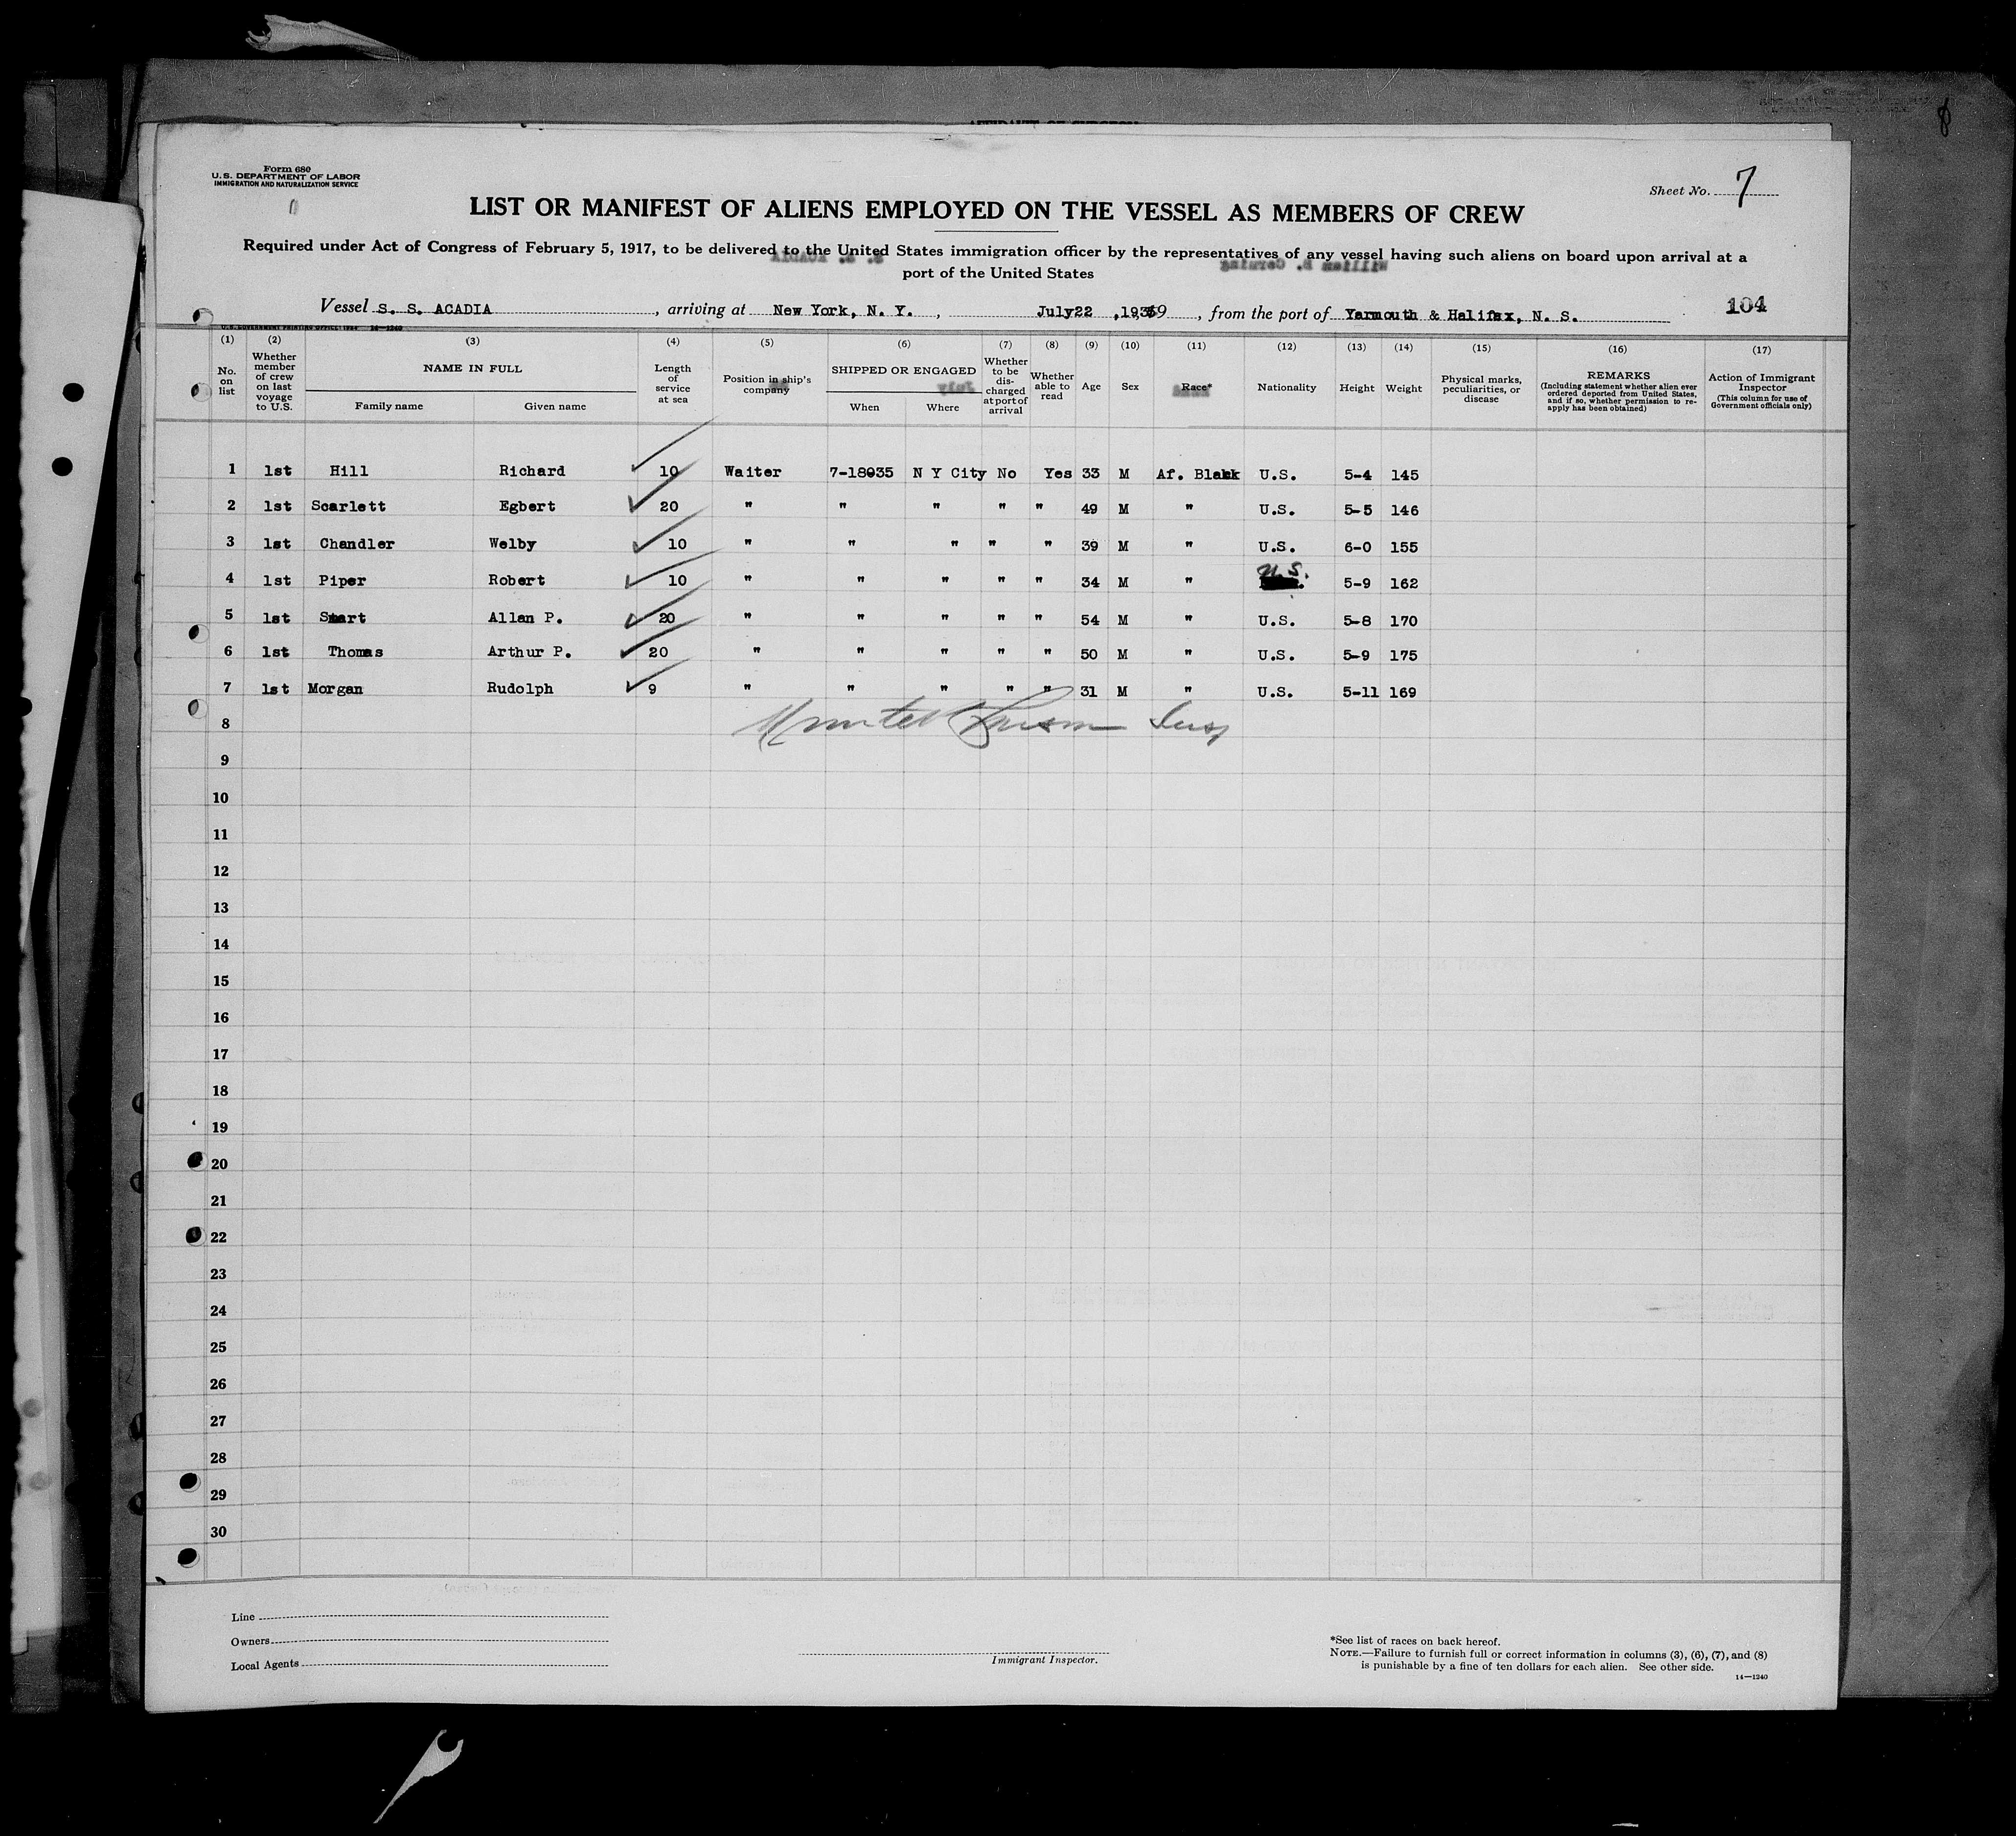 8
AFFIDAVIT OF SURGEON
Form 680
U. S. DEPARTMENT OF LABOR
IMMIGRATION AND NATURALIZATION SERVICE
Sheet No. 7
LIST OR MANIFEST OF ALIENS EMPLOYED ON THE VESSEL AS MEMBERS OF CREW
Required under Act of Congress of February 5, 1917, to be delivered to the United States immigration officer by the representatives of any vessel having such aliens on board upon arrival at a
port of the United States
Vessel S. S. ACADIA, arriving at New York, N. Y., July 22, 1935, from the port of Yarmouth & Halifax, N. S.
104
U.S. GOVERNMENT PRINTING OFFICE: 1934 14—1240
(1) (2) (3) (4) (5) (6) (7) (8) (9) (10) (11) (12) (13) (14) (15) (16) (17)
No. on list
Whether member of crew on last voyage to U.S.
NAME IN FULL
Family name
Given name
Length of service at sea
Position in ship's company
SHIPPED OR ENGAGED
When
Where
Whether to be discharged at port of arrival
Whether able to read
Age
Sex
Race*
Nationality
Height
Weight
Physical marks, peculiarities, or disease
REMARKS
(Including statement whether alien ever ordered deported from United States, and if so, whether permission to reapply has been obtained)
Action of Immigrant Inspector
(This column for use of Government officials only)
1 1st Hill Richard 10 Waiter 7-18935 N Y City No Yes 33 M Af. Black U.S. 5-4 145
2 1st Scarlett Egbert 20 " " " " " 49 M " U.S. 5-5 146
3 1st Chandler Welby 10 " " " " " 39 M " U.S. 6-0 155
4 1st Piper Robert 10 " " " " " 34 M " U.S. 5-9 162
5 1st Smart Allan P. 20 " " " " " 54 M " U.S. 5-8 170
6 1st Thomas Arthur P. 20 " " " " " 50 M " U.S. 5-9 175
7 1st Morgan Rudolph 9 " " " " " 31 M " U.S. 5-11 169
8
9
10
11
12
13
14
15
16
17
18
19
20
21
22
23
24
25
26
27
28
29
30
Line
Owners
Local Agents
Immigrant Inspector.
*See list of races on back hereof.
NOTE.—Failure to furnish full or correct information in columns (3), (6), (7), and (8)
is punishable by a fine of ten dollars for each alien. See other side.
14—1240